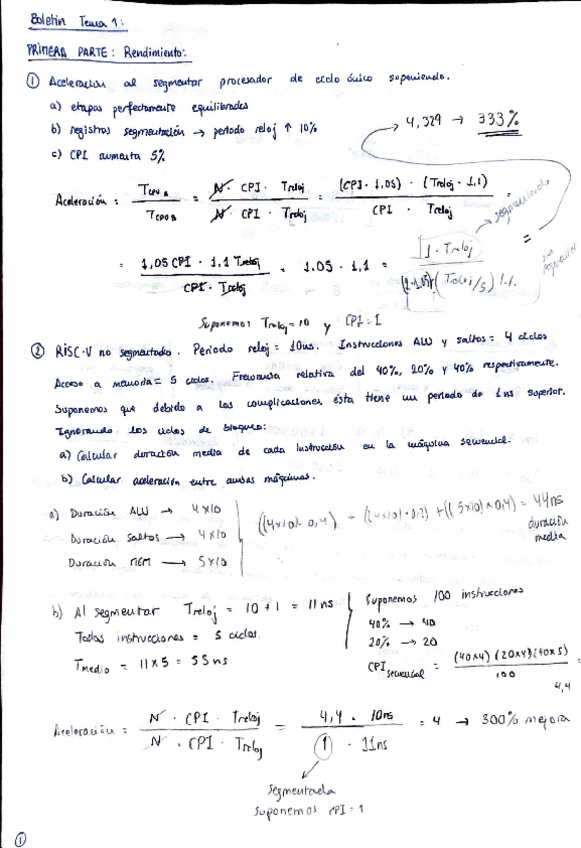 Boletín Tema 1:
PRIMERA PARTE: Rendimiento:
① Aceleración al segmentar procesador de ciclo único suponiendo.
a) etapas perfectamente equilibradas
b) registros segmentación → periodo reloj ↑ 10%
c) CPI aumenta 5%
4,329 → 333%
Aceleración = T_CPU A / T_CPU B = N · CPI · Treloj / N · CPI · Treloj = (CPI · 1,05) · (Treloj · 1,1) / CPI · Treloj =
= 1,05 CPI · 1.1 Treloj / CPI · Treloj = 1.05 · 1,1 = 1 · Treloj / (1·1.05) (Treloj/5) 1.1. =
segmentado
sin segmentar
Suponemos Treloj = 10 y CPI = 1
② RISC-V no segmentado. Periodo reloj = 10ns. Instrucciones ALU y saltos = 4 ciclos
Acceso a memoria = 5 ciclos. Frecuencia relativa del 40%, 20% y 40% respectivamente.
Suponemos que debido a las complicaciones ésta tiene un periodo de 1ns superior.
Ignorando los ciclos de bloqueo:
a) Calcular duración media de cada instrucción en la máquina secuencial.
b) Calcular aceleración entre ambas máquinas.
a) Duración ALU → 4x10
Duración saltos → 4x10
Duración MEM → 5x10
((4x10)·0,4) + ((4x10)·0,2) + ((5x10)x0,4) = 44ns
duración
media
b) Al segmentar Treloj = 10 + 1 = 11ns
Todas instrucciones = 5 ciclos.
Tmedio = 11x5 = 55ns
Suponemos 100 instrucciones
40% → 40
20% → 20
CPI secuencial = (40x4) (20x4) (40x5) / 100 =
4,4
Aceleración = N · CPI · Treloj / N · CPI · Treloj = 4,4 · 10ns / 1 · 11ns = 4 → 300% mejora
segmentada
suponemos CPI = 1
①